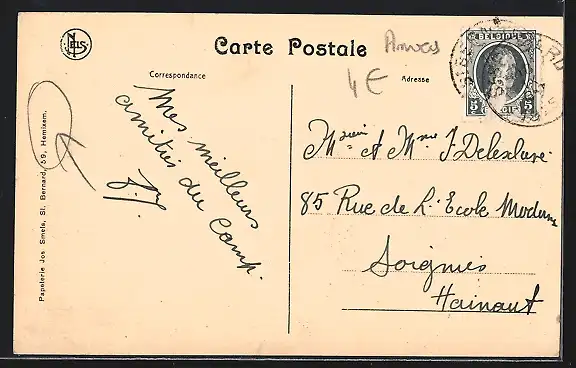 NELS
Carte Postale
Anvers
4 €
Correspondance
Adresse
BELGIQUE
5 5
Mes meilleurs
amitiés du camp.
Monsieur et Mme J Delexlure
85 Rue de L'Ecole Moderne
Soignies
Hainaut
Papeterie Jos Smets, St. Bernard, 59, Hemixem.